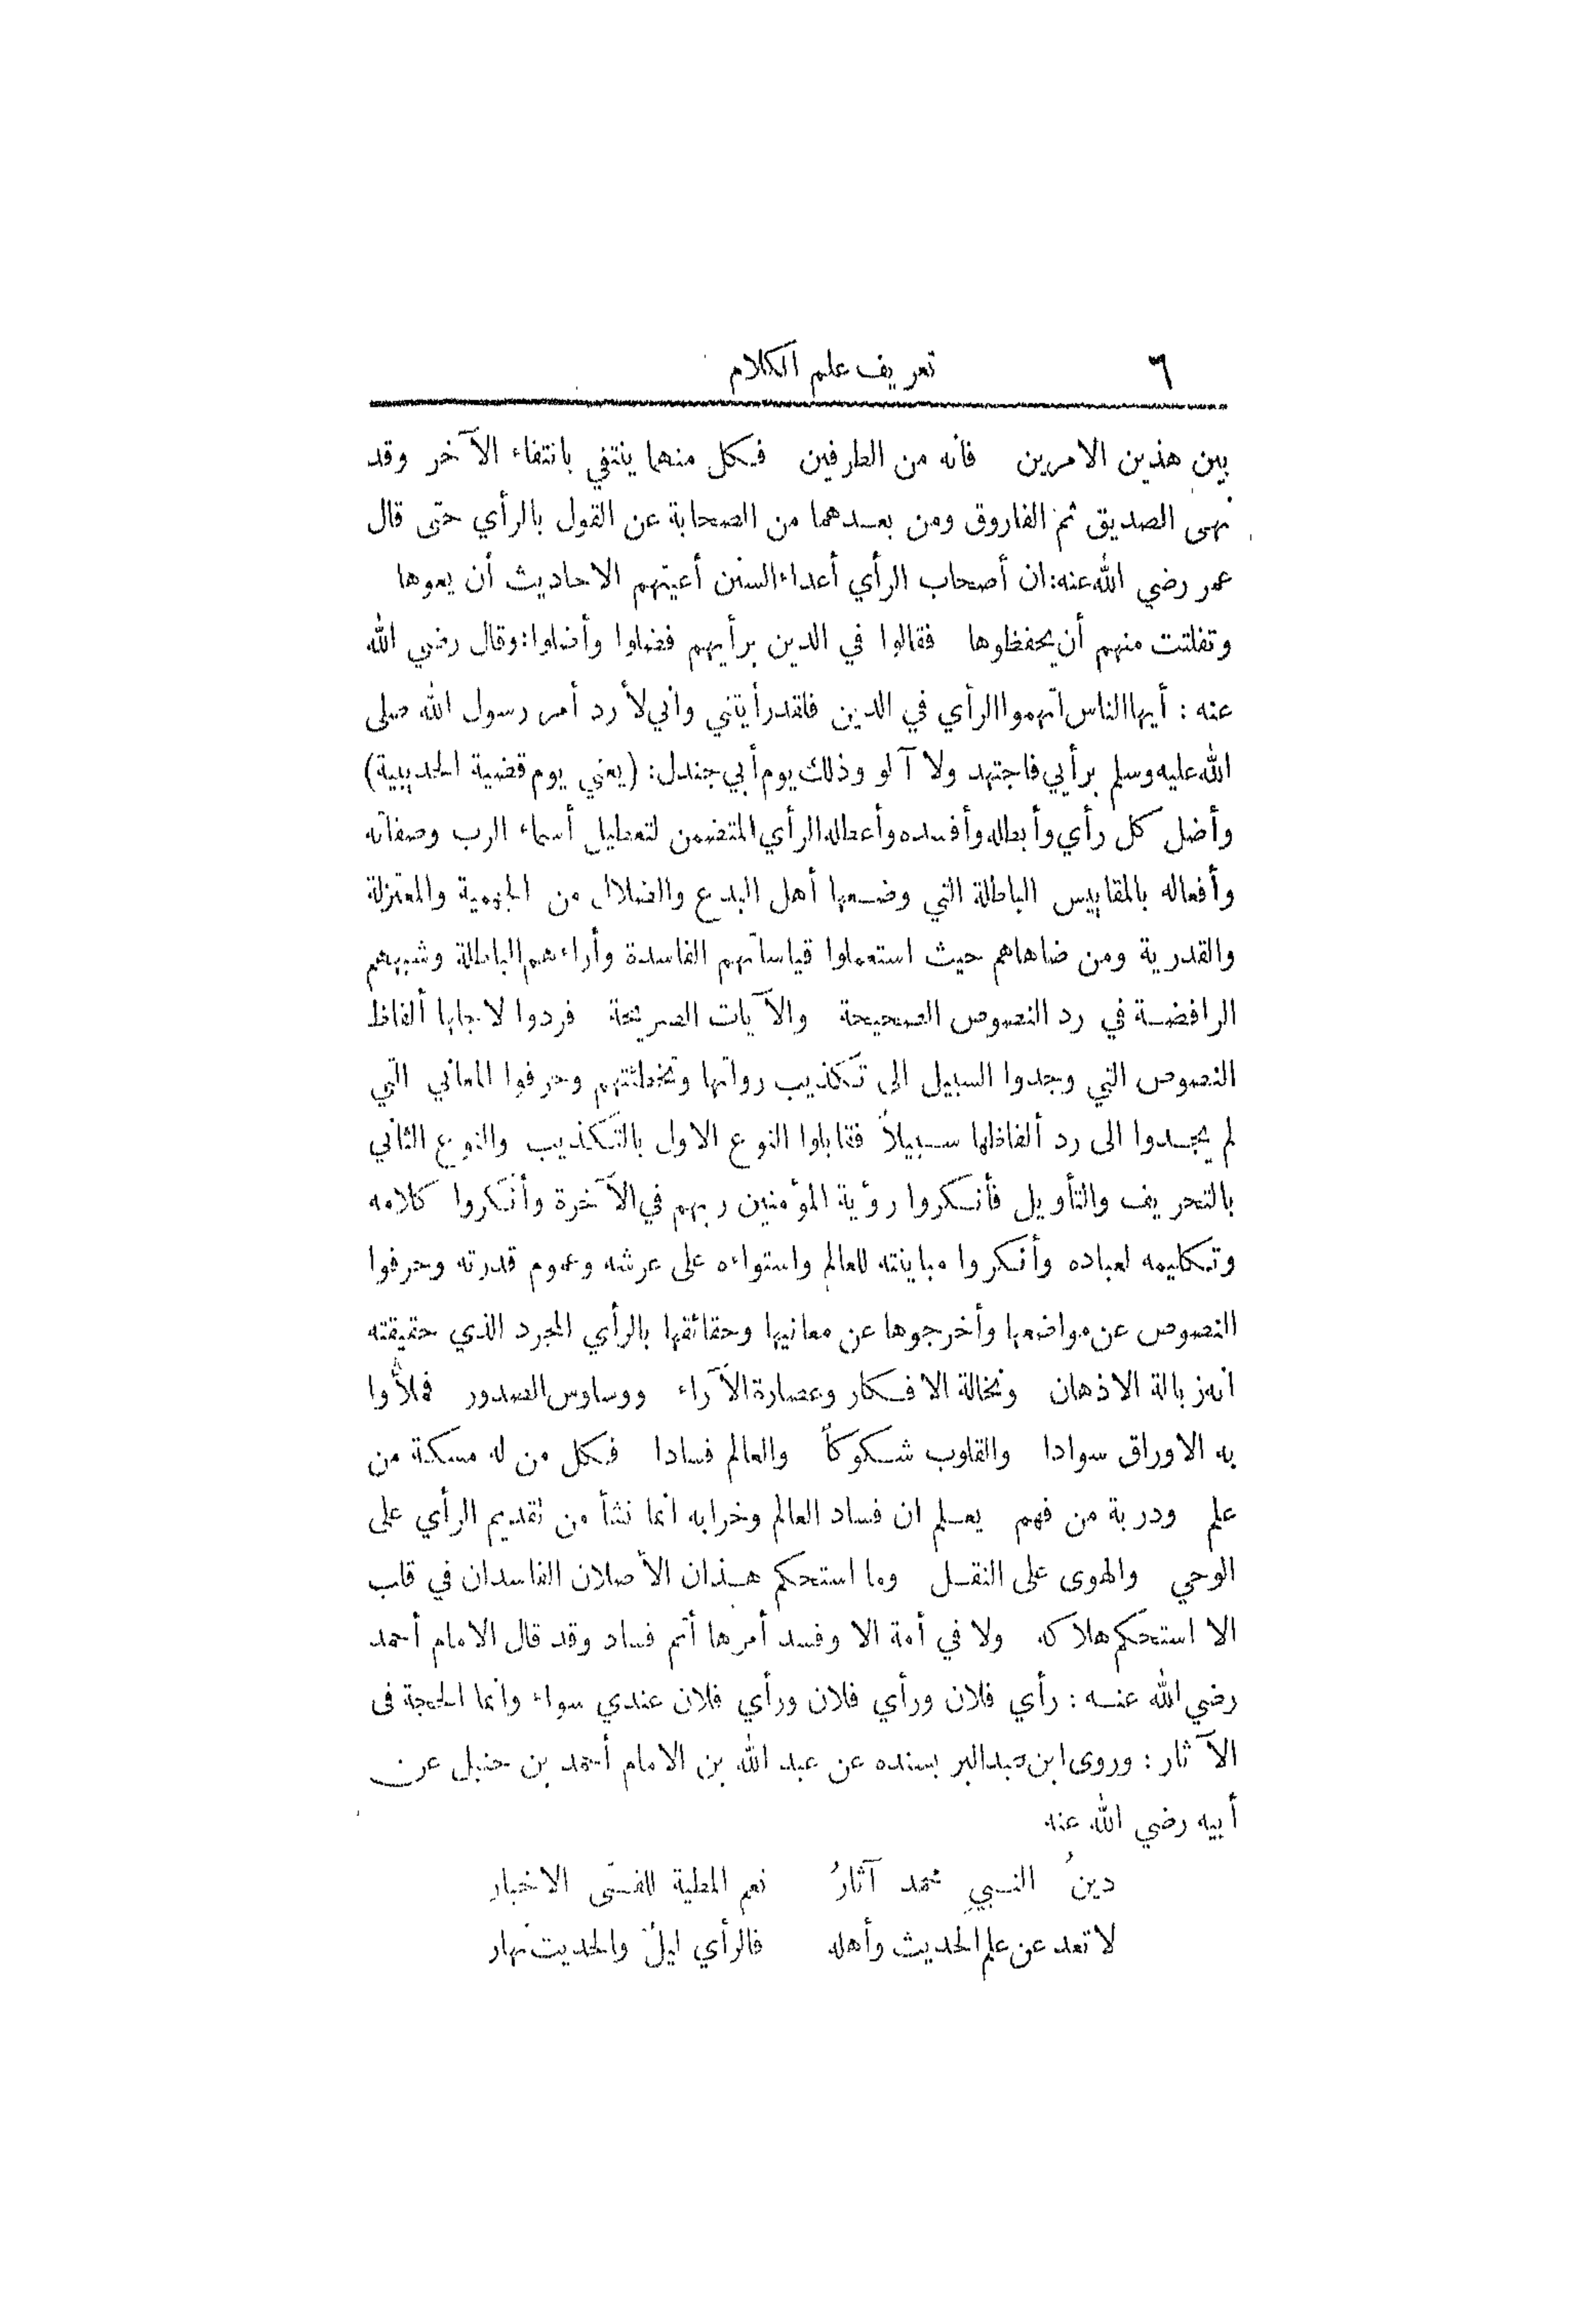 ٦
تعريف علم الكلام
بين هذين الامرين فانه من الطرفين فيكل منهما ينتفي بانتفاء الآخر وقد
نهى الصديق ثم الفاروق ومن بعدهما من الصحابة عن القول بالرأي حتى قال
عمر رضي الله عنه: ان أصحاب الرأي أعداء السنن أعيتهم الاحاديث أن يعوها
وتفلتت منهم أن يحفظوها فقالوا في الدين برأيهم فضلوا وأضلوا: وقال رضي الله
عنه : أيها الناس اتهموا الرأي في الدين فلقد رأيتني واني لأرد أمر رسول الله صلى
الله عليه وسلم برأيي فاجتهد ولا آلو وذلك يوم أبي جندل: (يعني يوم قضية الحديبية)
وأضل كل رأي وأبطله وأفسده وأعطله الرأي المتضمن لتعطيل أسماء الرب وصفاته
وأفعاله بالمقاييس الباطلة التي وضعها أهل البدع والضلال من الجهمية والمعتزلة
والقدرية ومن ضاهاهم حيث استعملوا قياساتهم الفاسدة وأراءهم الباطلة وشبههم
الرافضة في رد النصوص الصحيحة والآيات الصريحة فردوا لاجلها ألفاظ
النصوص التي وجدوا السبيل الى تكذيب رواتها وتخطئتهم وحرفوا المعاني التي
لم يجدوا الى رد ألفاظها سبيلاً فقابلوا النوع الاول بالتكذيب والنوع الثاني
بالتحريف والتأويل فأنكروا رؤية المؤمنين ربهم في الآخرة وأنكروا كلامه
وتكليمه لعباده وأنكروا مباينته للعالم واستواءه على عرشه وعموم قدرته وحرفوا
النصوص عن مواضعها وأخرجوها عن معانيها وحقائقها بالرأي المجرد الذي حقيقته
انه زبالة الاذهان ونخالة الافكار وعصارة الآراء ووساوس الصدور فملأوا
به الاوراق سوادا والقلوب شكوكاً والعالم فسادا فكل من له مسكة من
علم ودربة من فهم يعلم ان فساد العالم وخرابه انما نشأ من تقديم الرأي على
الوحي والهوى على النقل وما استحكم هذان الأصلان الفاسدان في قلب
الا استحكم هلاكه ولا في أمة الا وفسد أمرها أتم فساد وقد قال الامام أحمد
رضي الله عنه : رأي فلان ورأي فلان ورأي فلان عندي سواء وانما الحجة في
الآثار : وروى ابن عبد البر بسنده عن عبد الله بن الامام أحمد بن حنبل عن
أبيه رضي الله عنه
دينُ النبيِ محمد آثارُ نعم المطية للفتى الاخبار
لا تعد عن علم الحديث وأهله فالرأي ليلٌ والحديث نهار